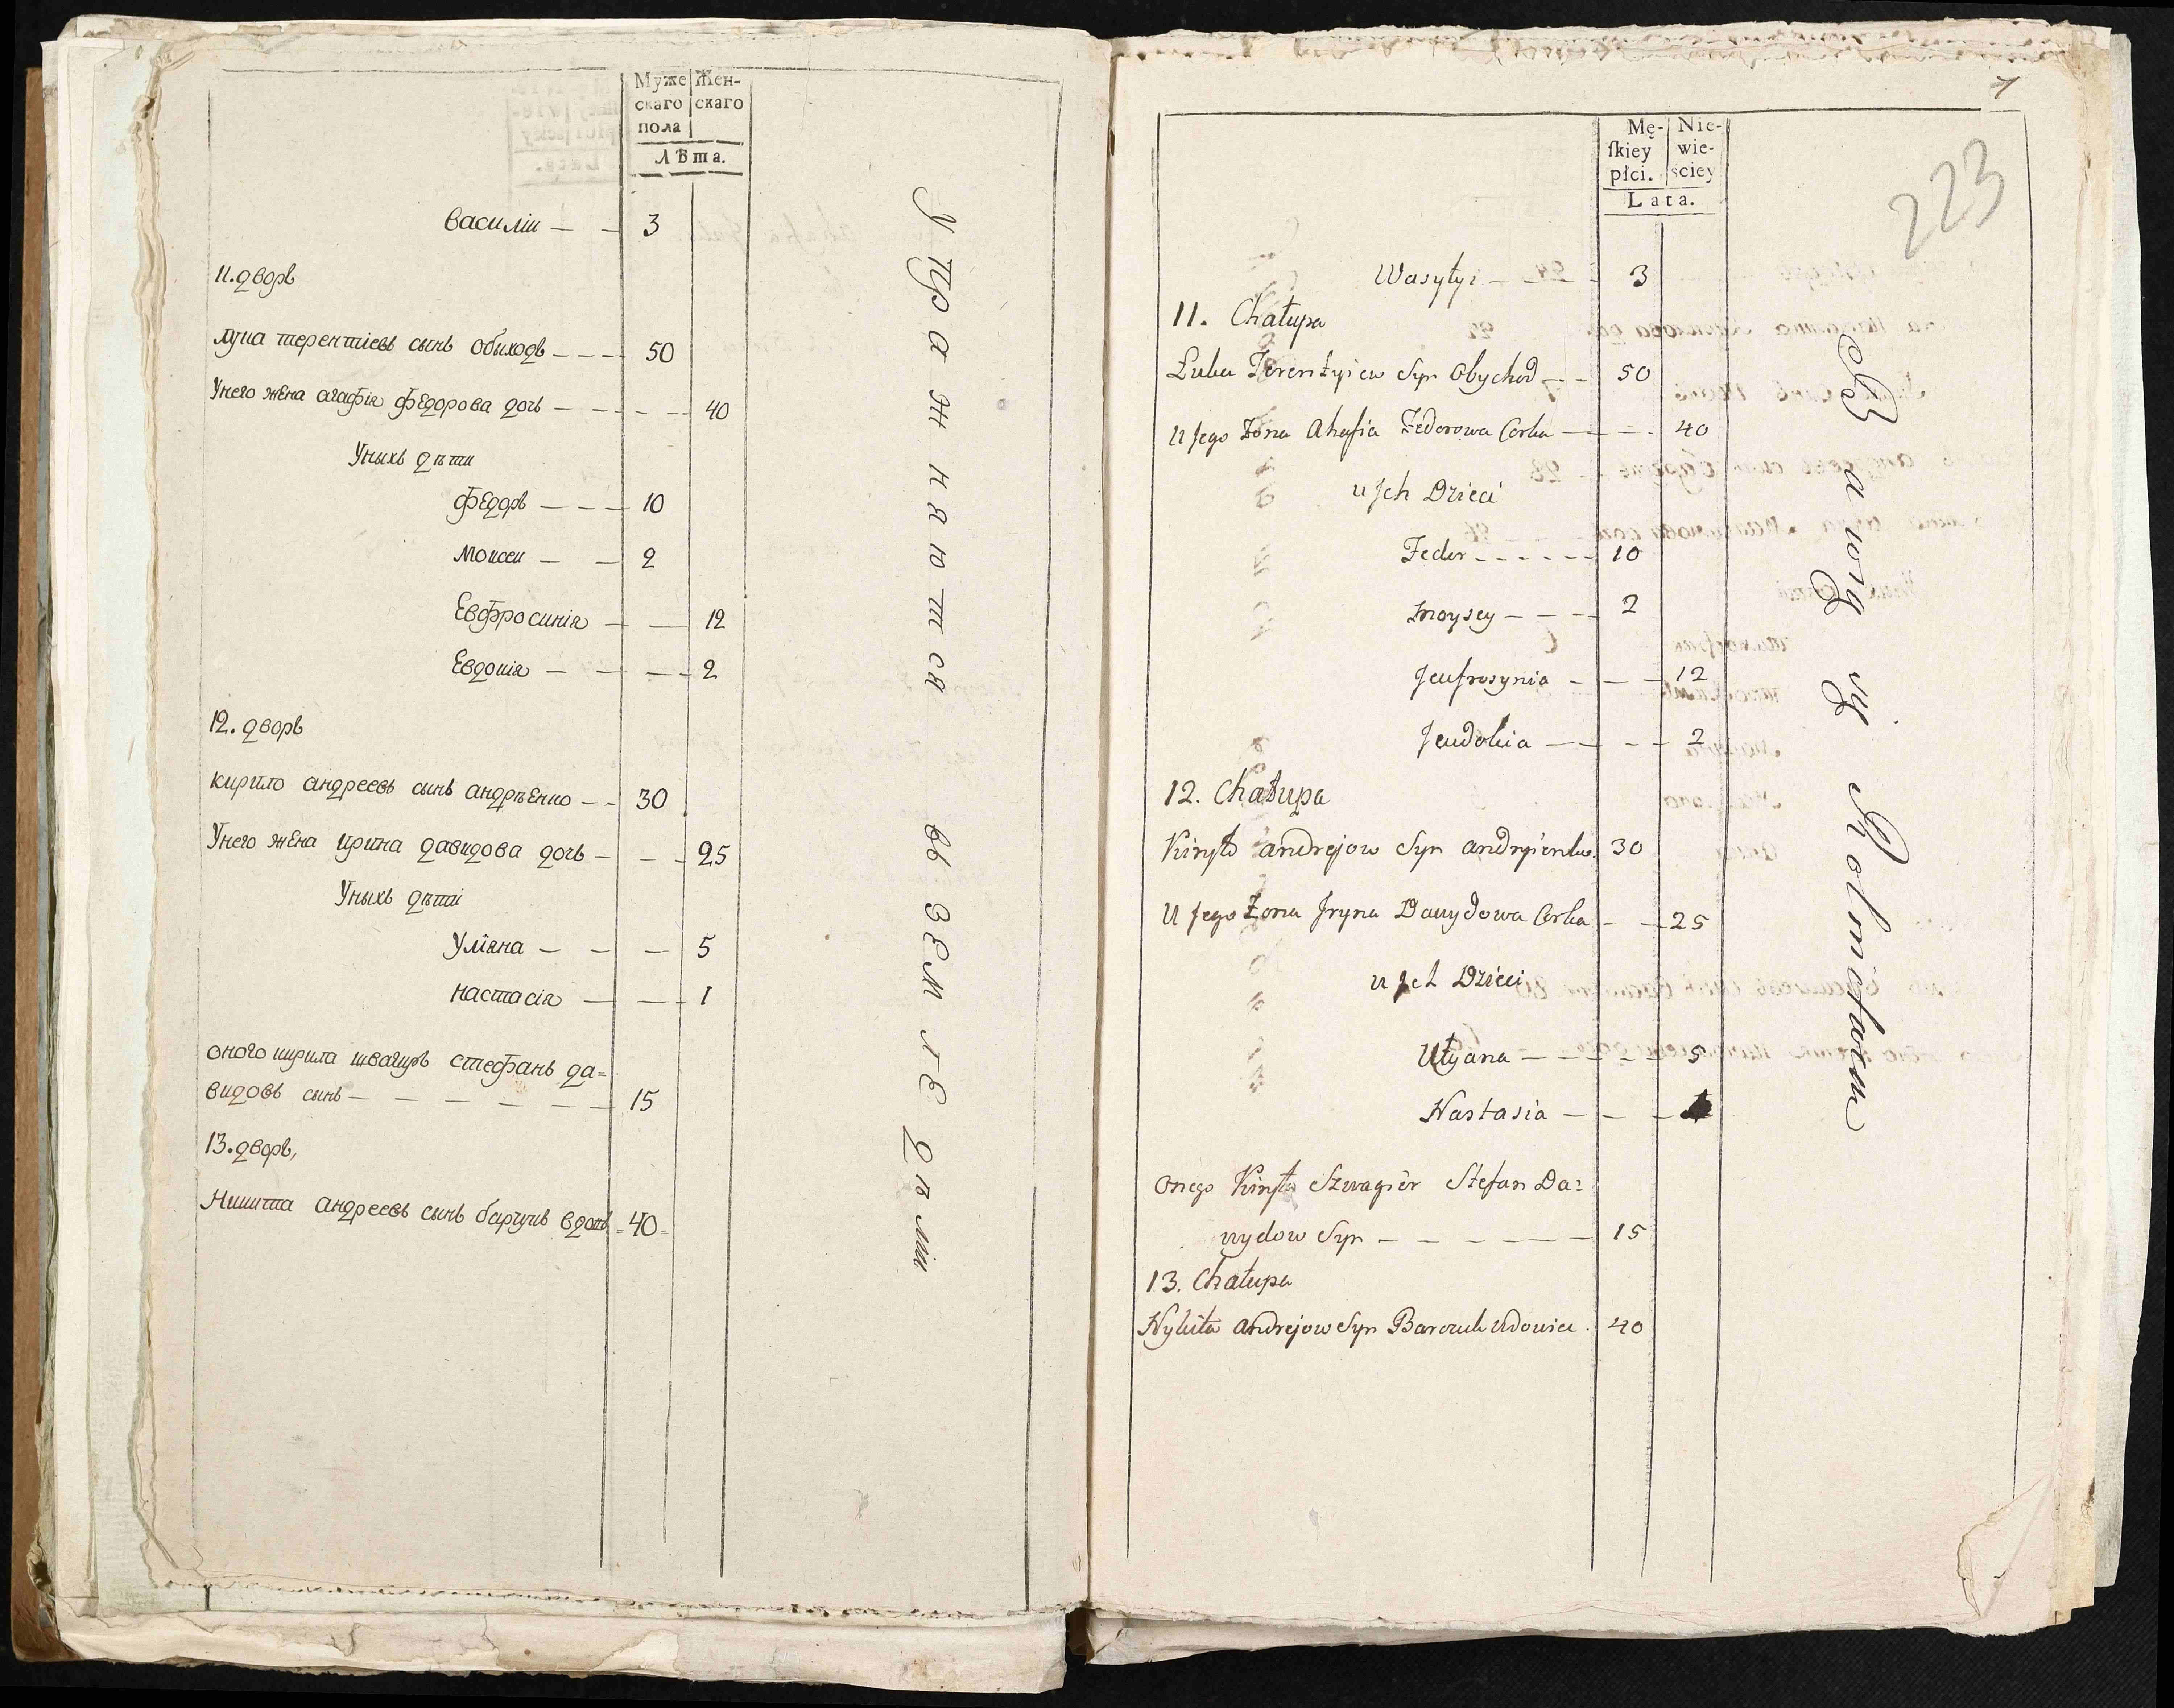 Муже Жен-
скаго скаго
пола
Лѣта.
василіи — — 3
11. дворъ
лука терентіевъ сынъ обыходъ — — — 50
Унего жена агафія федорова дочь — — — — 40
Уныхъ дѣти
федоръ — — — 10
моисеи — — 2
Евфросинія — — 12
Евдокія — — — — 2
12. дворъ
кирило андреевъ сынъ андрѣенко — — 30
Унего жена ирина давидова дочь — — — 25
Уныхъ дѣти
Уліяна — — — 5
настасія — — — 1
оного кирила швагиръ стефанъ да=
видовъ сынъ — — — — — — 15
13. дворъ,
Никита андреевъ сынъ барчукъ вдовъ 40
Упражняются въ земледѣліи
7
223
Mę- Nie-
ſkiey wie-
płci. sciey
Lata.
Wasylyi — — 3
11. Chałupa
Łuka Terentyiew Syn Obychod — — 50
U Jego Żona Ahafia Fedorowa Corka — — 40
u Jch Dzieci
Fedor - - - - - 10
Moysey — — — 2
Jeufrosynia — — — 12
Jeudokia — — — — 2
12. Chałupa
Kiryło andrejow Syn andryienko 30
U Jego Żona Jryna Dawydowa Corka — — 25
u Jch Dzieci
Ulyana — — — — 5
Nastasia — — —
Onego Kiryła Szwagier Stefan Da=
wydow Syn — — — — — — 15
13. Chałupa
Nykita andrejow Syn Barczuk Udowiec 40
Bawią się Rolnictwem